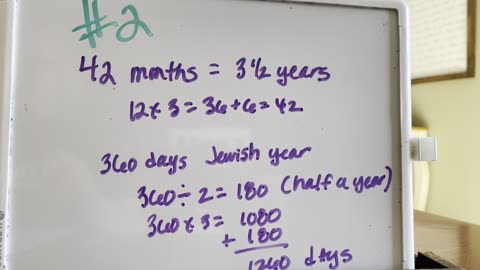 #2
42 months = 3 1/2 years
12 x 3 = 36 + 6 = 42
360 days Jewish year
360 ÷ 2 = 180 (half a year)
360 x 3 = 1080
+ 180
1260 days